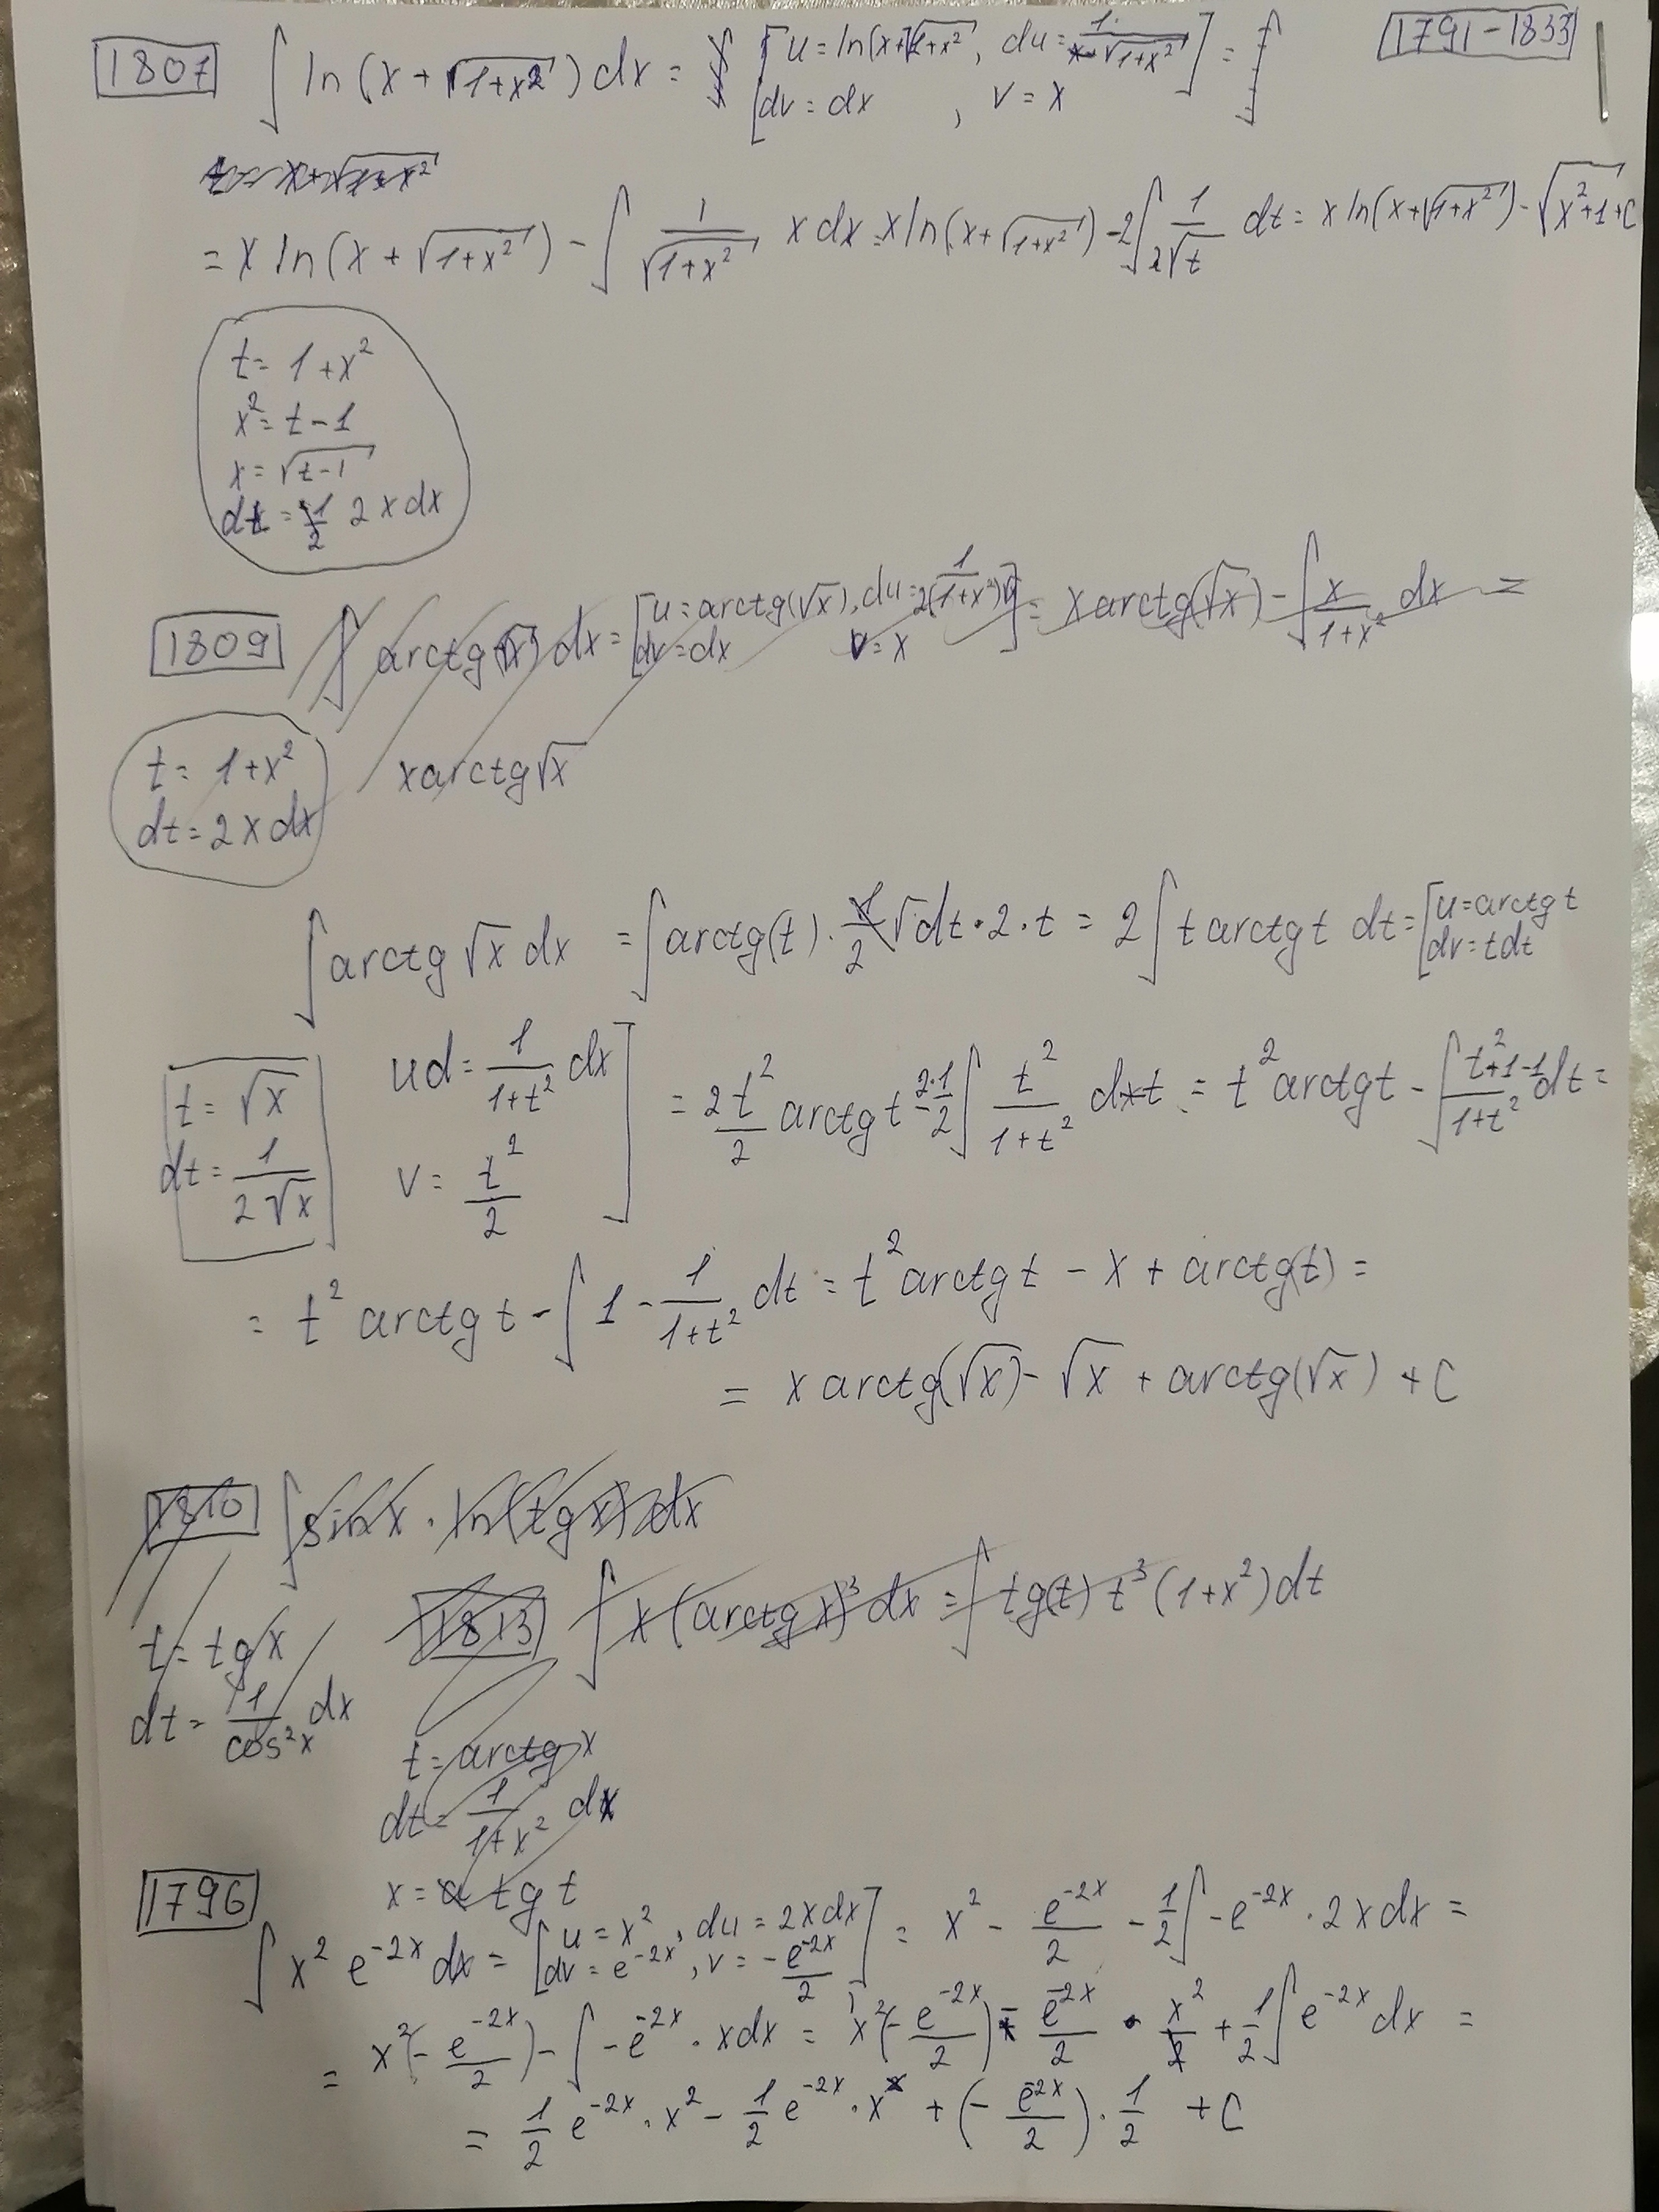 1807 ∫ ln(x + √(1+x²)) dx = [u = ln(x+√(1+x²), du = 1/√(1+x²)] = ∫ 1791-1833
[dv = dx, v = x
= x ln(x + √(1+x²)) - ∫ 1/√(1+x²) x dx = x ln(x+√(1+x²)) - 2∫ 1/(2√t) dt = x ln(x+√(1+x²)) - √(x²+1) + C
t = 1+x²
x² = t-1
x = √(t-1)
dt = 1/2 2xdx
1809 ∫ arctg(√x) dx = [u = arctg(√x), du = 1/(2(1+x²)) ] = x arctg(√x) - ∫ x/(1+x²) dx =
[dv = dx v = x
t = 1+x² x arctg √x
dt = 2xdx
∫ arctg √x dx = ∫ arctg(t) · dt · 2 · t = 2 ∫ t arctg t dt = [u = arctg t
[dv = tdt
t = √x ud = 1/(1+t²) dx ] = 2t²/2 arctg t - 2·1/2 ∫ t²/(1+t²) dt = t² arctg t - ∫ (t²+1-1)/(1+t²) dt =
dt = 1/(2√x) v = t²/2
= t² arctg t - ∫ 1 - 1/(1+t²) dt = t² arctg t - x + arctg(t) =
= x arctg(√x) - √x + arctg(√x) + C
1810 ∫ sin x · ln(tg x) dx
1813 ∫ x (arctg x)³ dx = ∫ tg(t) t³ (1+x²) dt
t = tg x
dt = 1/cos²x dx
t = arctg x
dt = 1/(1+x²) dx
x = tg t
1796
∫ x² e^(-2x) dx = [u = x², du = 2xdx ] = x² - e^(-2x)/2 - 1/2 ∫ -e^(-2x) · 2xdx =
[dv = e^(-2x), v = -e^(-2x)/2
= x²(-e^(-2x)/2) - ∫ -e^(-2x) · xdx = x²(-e^(-2x)/2) - e^(-2x)/2 · x²/2 + 1/2 ∫ e^(-2x) dx =
= 1/2 e^(-2x) · x² - 1/2 e^(-2x) · x + (-e^(-2x)/2) · 1/2 + C